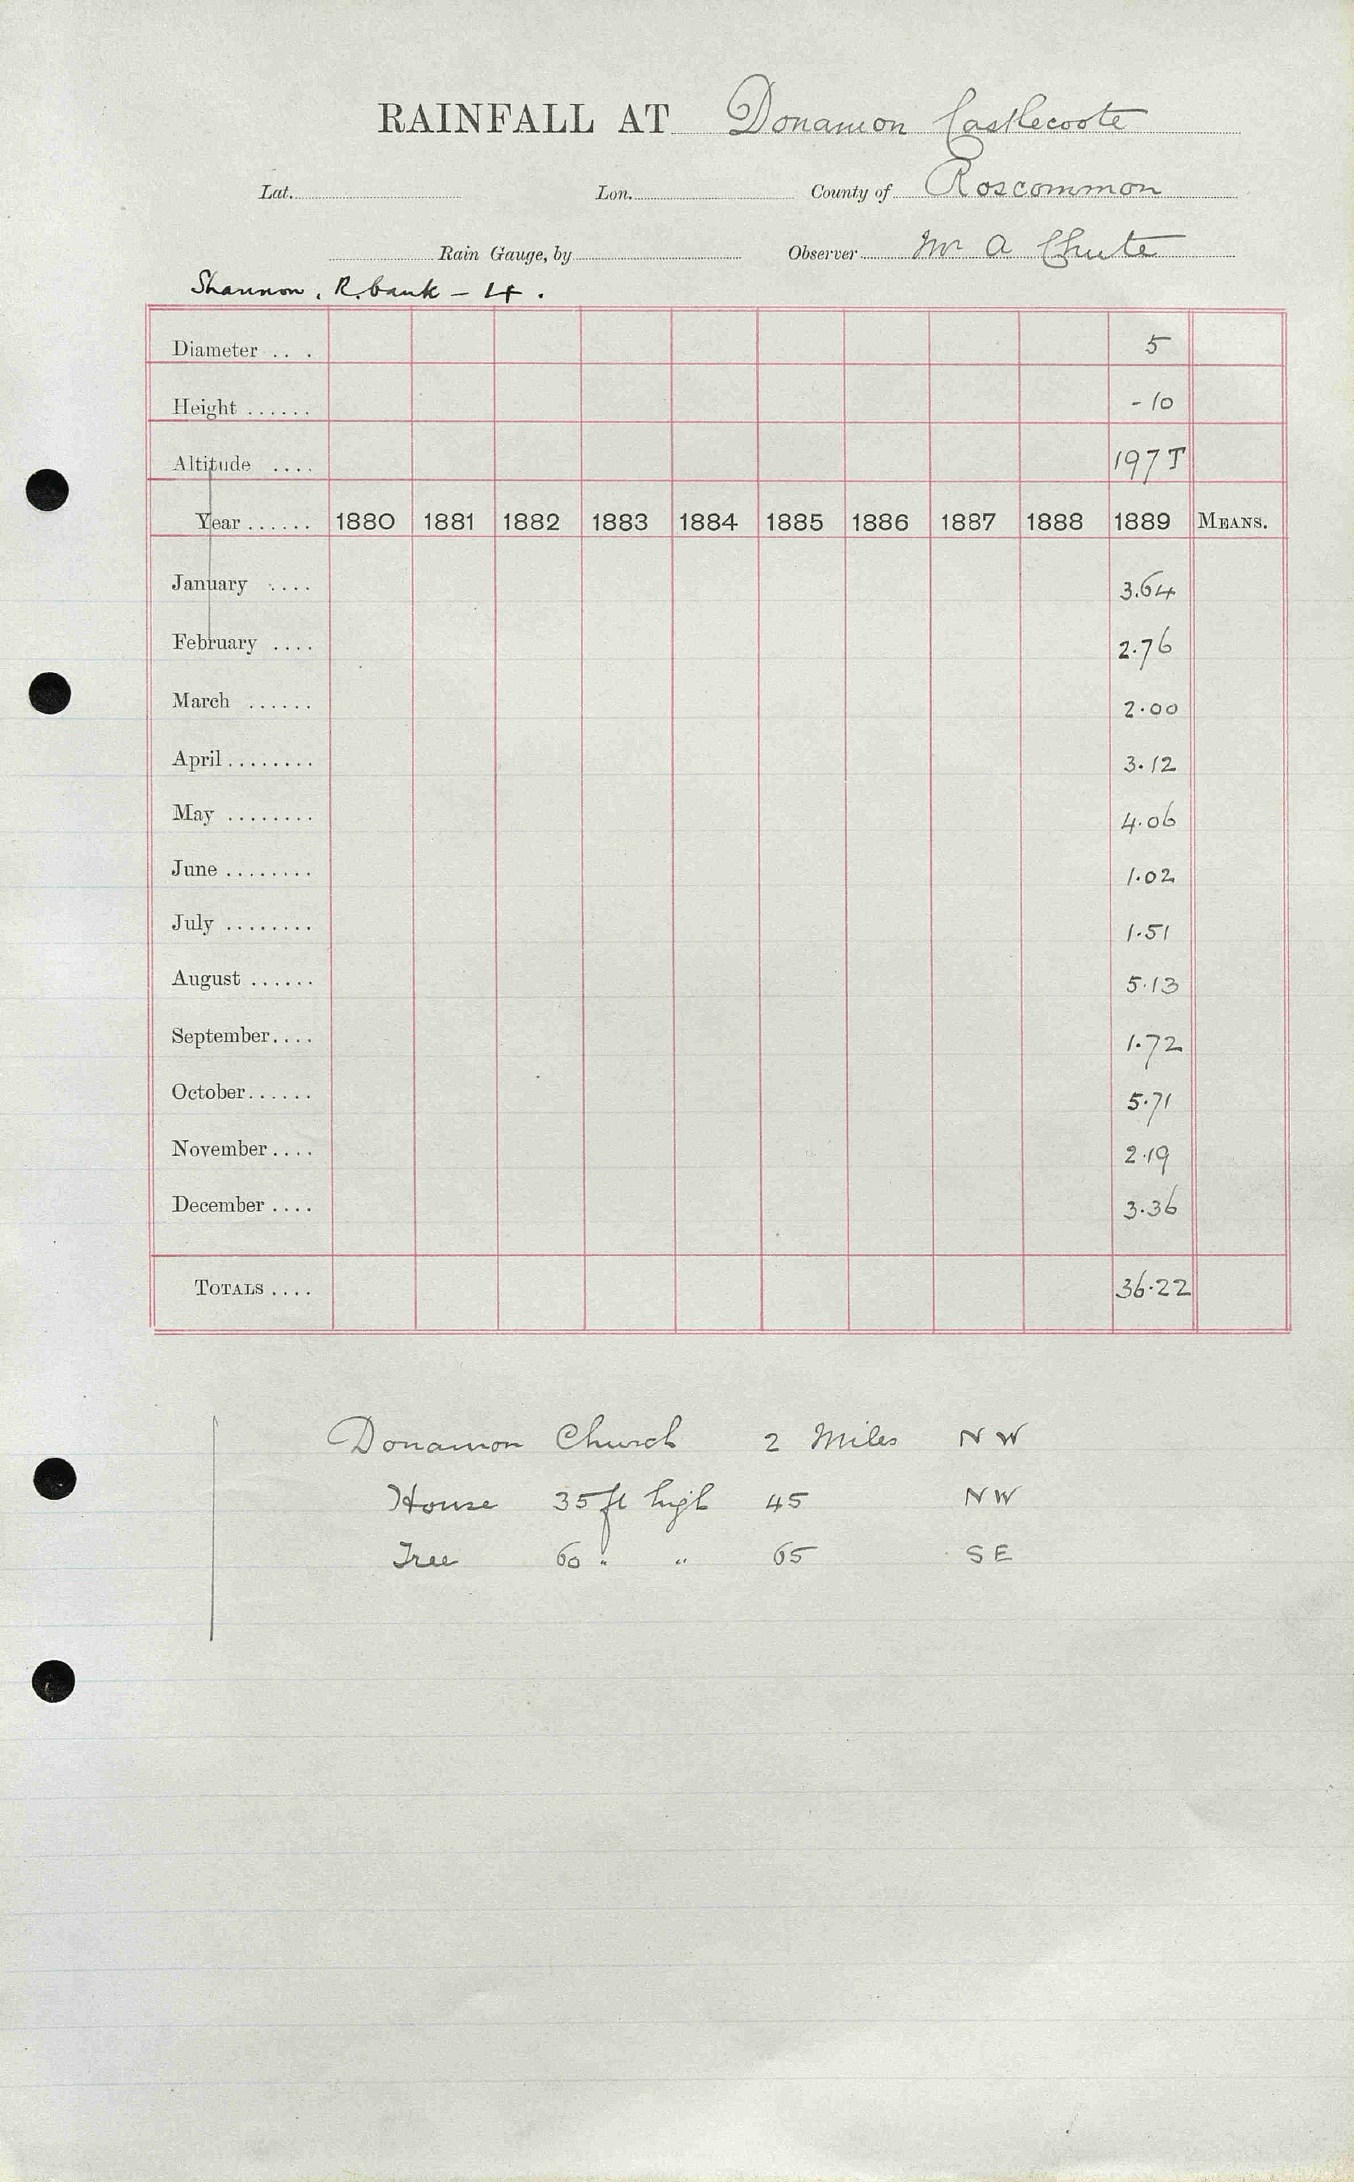 RAINFALL AT Donamon Castlecoote
Lat. Lon. County of Roscommon
Rain Gauge, by Observer Mr A Chute
Shannon, R. bank – 14.
Diameter .. . 5
Height ...... - 10
Altitude .... 197 T
Year ...... 1880 1881 1882 1883 1884 1885 1886 1887 1888 1889 MEANS.
January .... 3.64
February .... 2.76
March ...... 2.00
April ........ 3.12
May ........ 4.06
June ........ 1.02
July ........ 1.51
August ...... 5.13
September.... 1.72
October...... 5.71
November .... 2.19
December .... 3.36
TOTALS .... 36.22
Donamon Church 2 Miles NW
House 35 ft high 45 NW
Tree 60 " " 65 SE